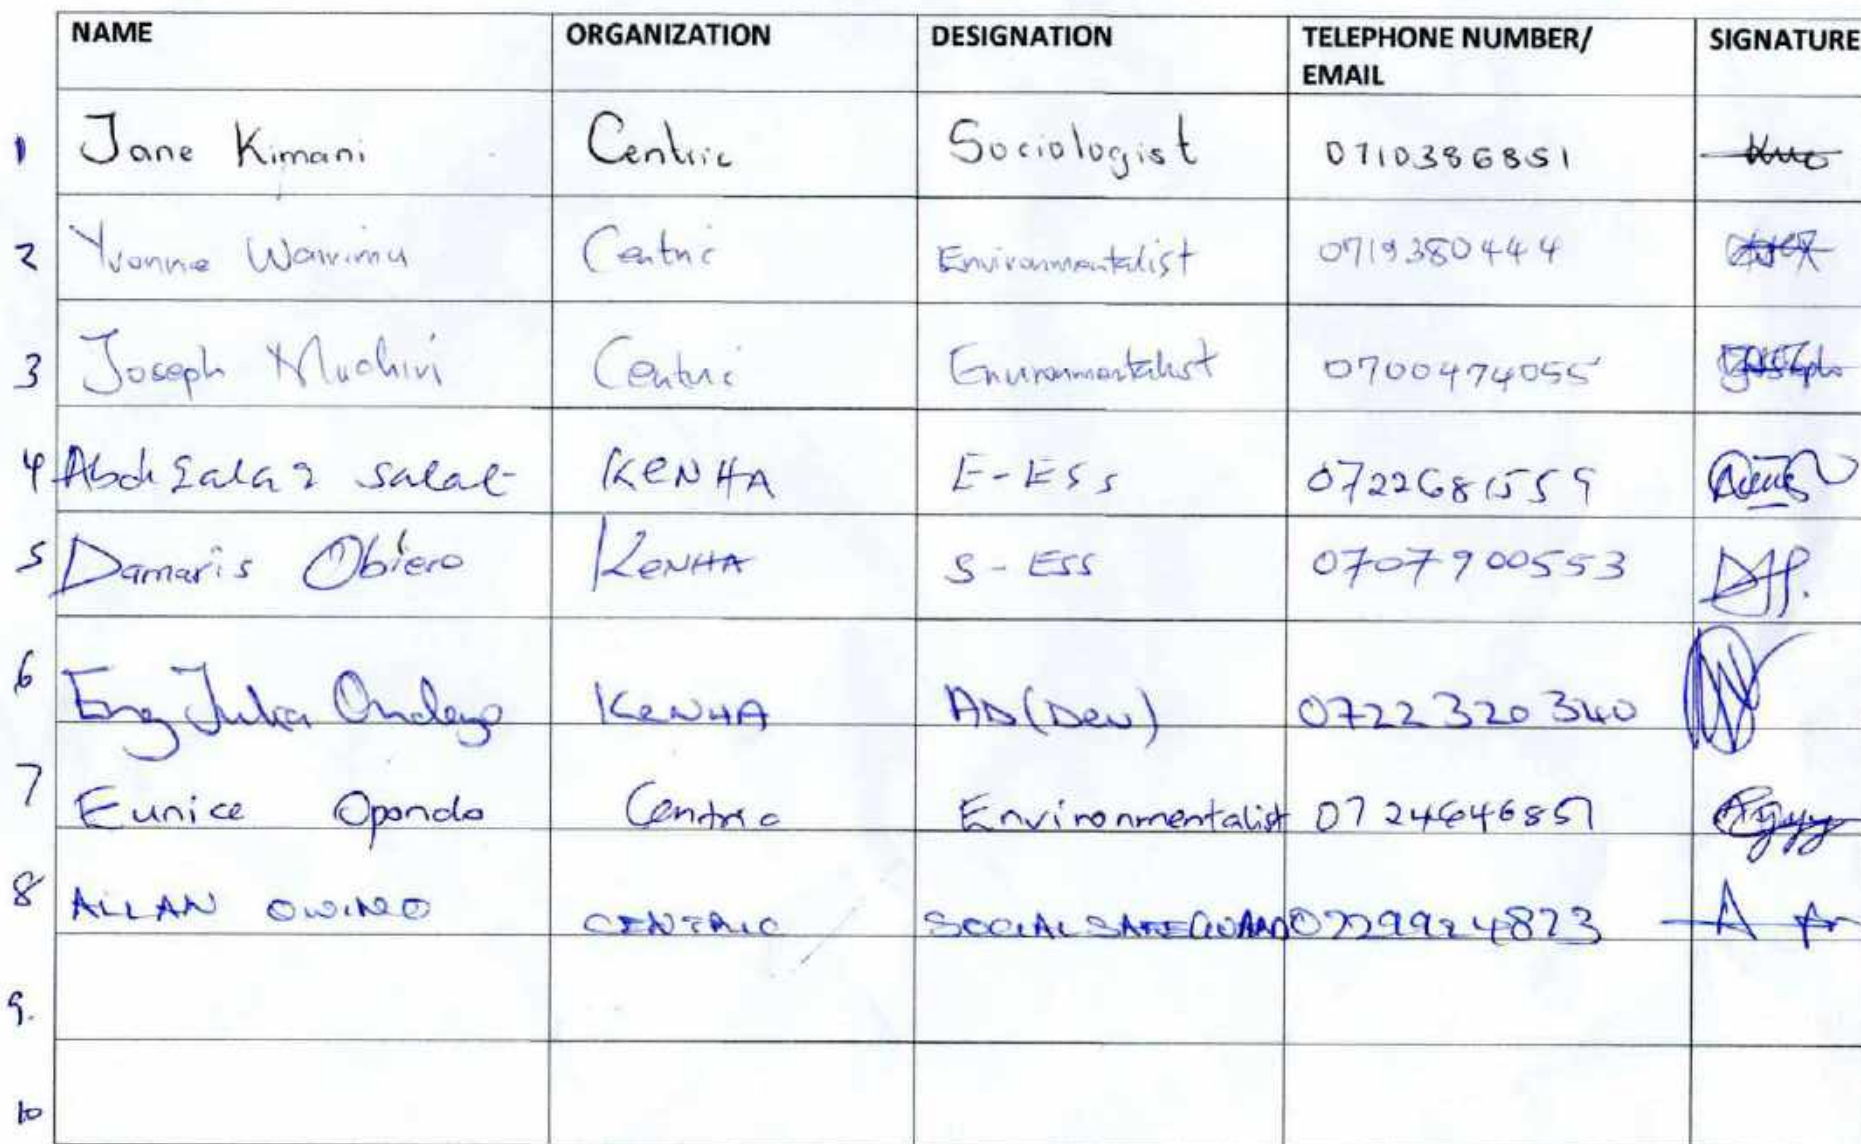 NAME ORGANIZATION DESIGNATION TELEPHONE NUMBER/ SIGNATURE
EMAIL
1 Jane Kimani Centric Sociologist 0710386851
2 Yvonne Wairimu Centric Environmentalist 0719380444
3 Joseph Muchiri Centric Environmentalist 0700474055
4 Salat KENHA E-ESS 0722681559
5 Damaris Obiero KeNHA S-ESS 0707900553
6 Eng Julia Ondeyo KeNHA AD(Dev) 0722320340
7 Eunice Opondo Centric Environmentalist 0724646857
8 ALLAN OWINO CENTRIC SOCIAL SAFEGUARD 0729924823
9.
10